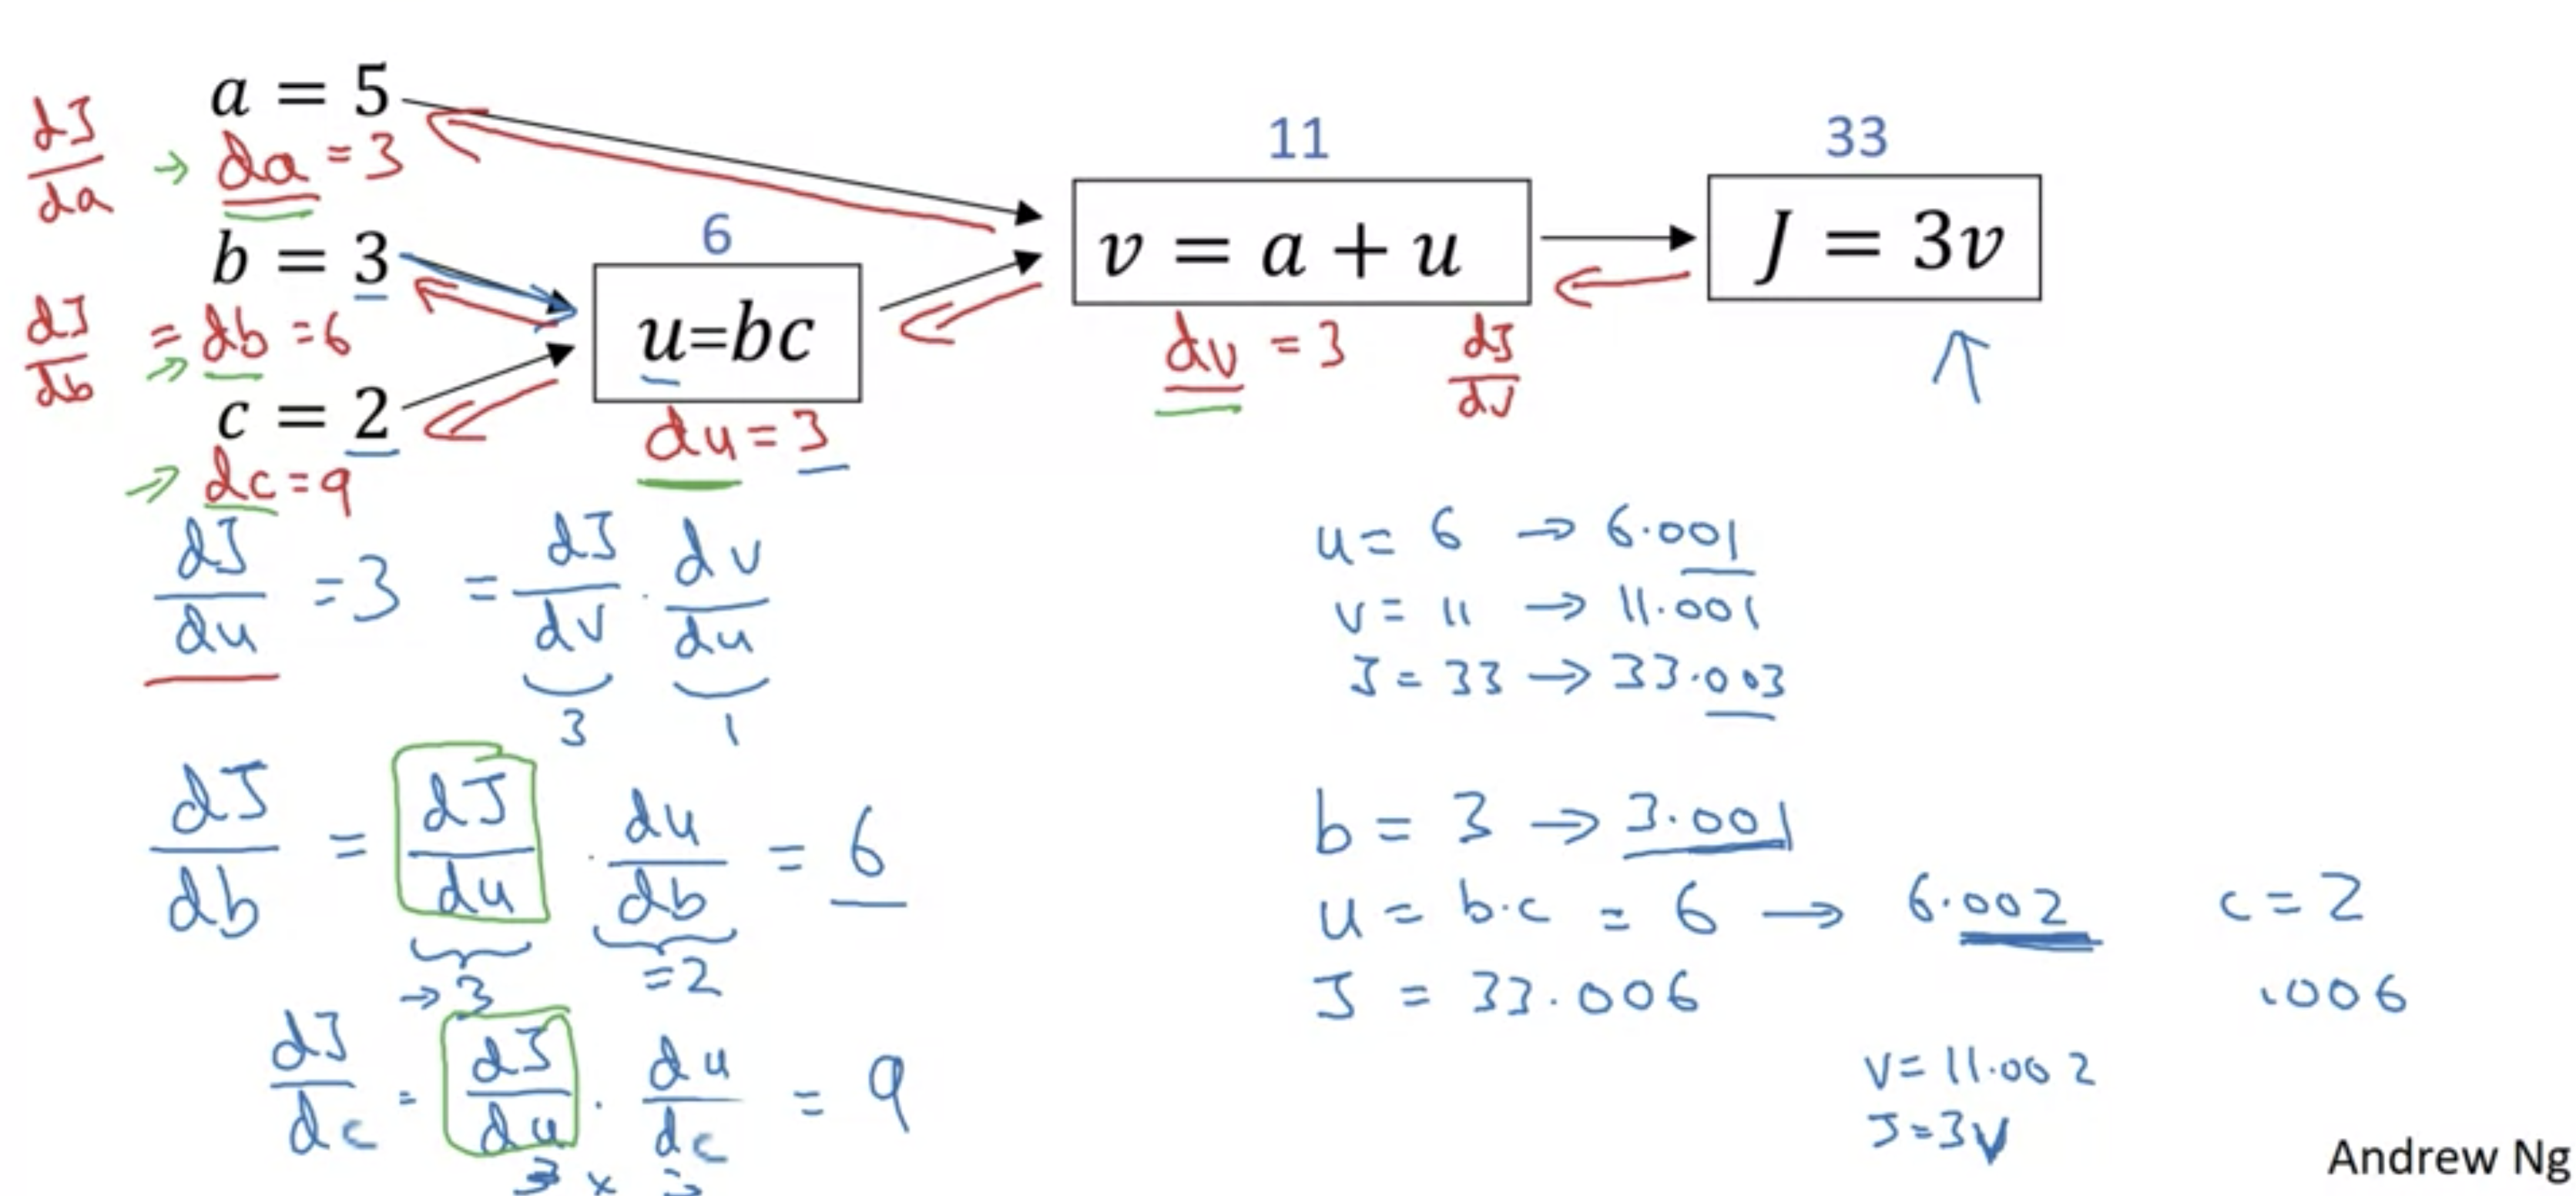 a = 5
dJ/da → da = 3
b = 3
dJ/db = db = 6
c = 2
→ dc = 9
6
u=bc
du = 3
11
v = a + u
dv = 3 dJ/dv
33
J = 3v
dJ/du = 3 = dJ/dv · dv/du
3 1
dJ/db = dJ/du · du/db = 6
→ 3 = 2
dJ/dc = dJ/du · du/dc = 9
3 x
u = 6 → 6.001
v = 11 → 11.001
J = 33 → 33.003
b = 3 → 3.001
u = b·c = 6 → 6.002 c = 2
J = 33.006 .006
v = 11.002
J = 3v
Andrew Ng